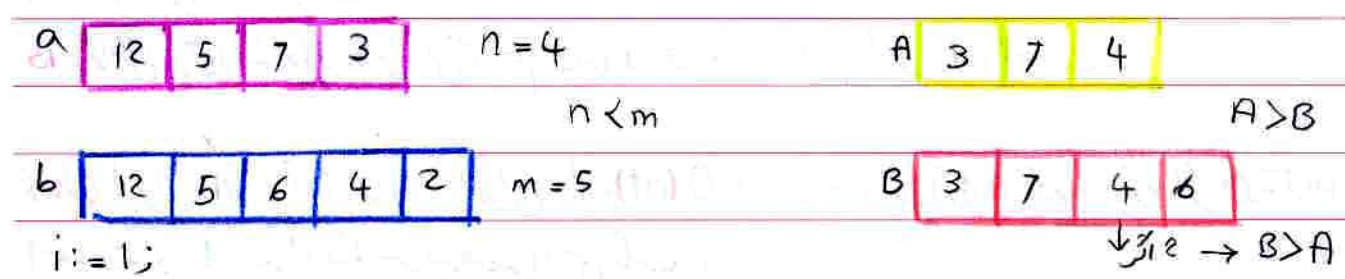 a 12 5 7 3 n = 4 A 3 7 4
n < m A > B
b 12 5 6 4 2 m = 5 B 3 7 4 6
i := 1; ↓ → B > A